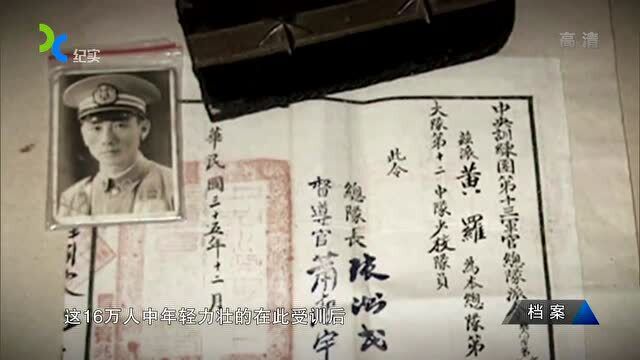 纪实
高清
中央訓練團第十三軍官總隊派
茲派黃羅為本總隊第
大隊第十二中隊少校隊員
此令
總隊長
督導官蕭
華民國三十五年十二月
这16万人中年轻力壮的在此受训后
档案